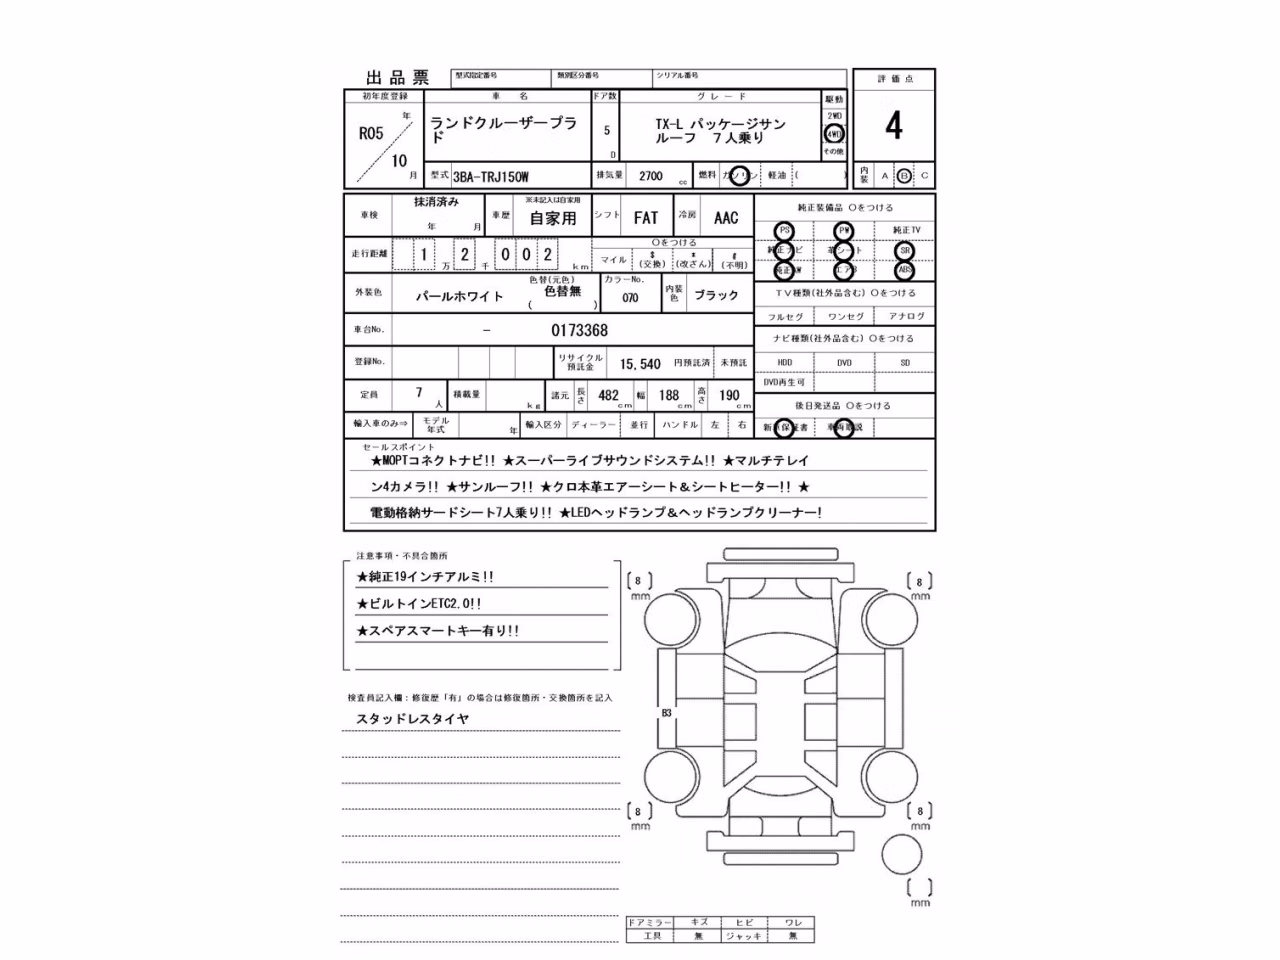 出品票 型式指定番号 類別区分番号 シリアル番号 評価点
初年度登録 車名 ドア数 グレード 駆動
R05 年 10 月 ランドクルーザープラ
ド 5 D TX-L パッケージサン
ルーフ 7人乗り 2WD 4WD その他 4
型式 3BA-TRJ150W 排気量 2700 cc 燃料 ガソリン 軽油 ( ) 内装 A B C
車検 抹消済み 年 月 車歴 ※未記入は自家用 自家用 シフト FAT 冷房 AAC 純正装備品 〇をつける
PS PW 純正TV
走行距離 1 万 2 千 0 0 2 km 〇をつける
マイル $ (交換) * (改ざん) # (不明) 純正ナビ 革シート SR
純正AW エアB ABS
外装色 パールホワイト 色替(元色) 色替無 ( ) カラーNo. 070 内装色 ブラック TV種類(社外品含む) 〇をつける
フルセグ ワンセグ アナログ
車台No. - 0173368 ナビ種類(社外品含む) 〇をつける
登録No. リサイクル預託金 15,540 円預託済 未預託 HDD DVD SD
DVD再生可
定員 7 人 積載量 kg 諸元 長さ 482 cm 幅 188 cm 高さ 190 cm 後日発送品 〇をつける
輸入車のみ⇒ モデル年式 年 輸入区分 ディーラー 並行 ハンドル 左 右 新車保証書 車両取説
セールスポイント
★MOPTコネクトナビ!! ★スーパーライブサウンドシステム!! ★マルチテレイ
ン4カメラ!! ★サンルーフ!! ★クロ本革エアーシート&シートヒーター!! ★
電動格納サードシート7人乗り!! ★LEDヘッドランプ&ヘッドランプクリーナー!
注意事項・不具合箇所
★純正19インチアルミ!!
★ビルトインETC2.0!!
★スペアスマートキー有り!!
検査員記入欄:修復歴「有」の場合は修復箇所・交換箇所を記入
スタッドレスタイヤ
[8] mm [8] mm
B3
[8] mm [8] mm
[ ] mm
ドアミラー キズ ヒビ ワレ
工具 無 ジャッキ 無